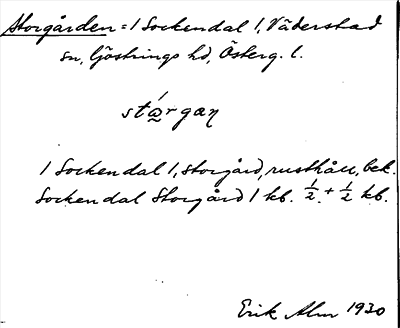 Storgården = 1 Sockendal 1, Väderstad
sn, Göstrings hd, Österg. l.
stɷ́rgaɳ
1 Sockendal 1, storgård, rusthåll, bek.
Sockendal Storgård 1 kb. 1/2 + 1/2 kb.
Erik Alm 1930